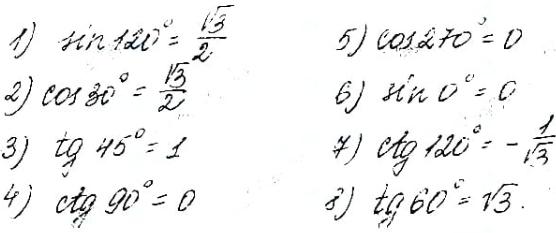 1) sin 120° = √3/2
2) cos 30° = √3/2
3) tg 45° = 1
4) ctg 90° = 0
5) cos 270° = 0
6) sin 0° = 0
7) ctg 120° = - 1/√3
8) tg 60° = √3.